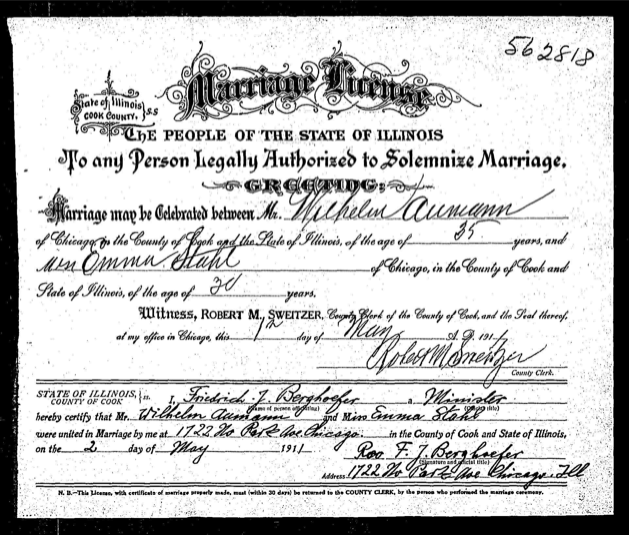 562818
Marriage License
State of Illinois } S.S
COOK COUNTY.
THE PEOPLE OF THE STATE OF ILLINOIS
To any Person Legally Authorized to Solemnize Marriage.
GREETING:
Marriage may be Celebrated between Mr. Wilhelm Aumann
of Chicago, in the County of Cook and the State of Illinois, of the age of 35 years, and
Emma Stahl of Chicago, in the County of Cook and
State of Illinois, of the age of years.
Witness, ROBERT M. SWEITZER, County Clerk of the County of Cook, and the Seal thereof,
at my office in Chicago, this day of May A. D. 1911
Robert M Sweitzer
County Clerk.
STATE OF ILLINOIS, } ss. I, Friedrich J. Berghoefer a Minister
COUNTY OF COOK (Name of person officiating) (Official title)
hereby certify that Mr. Wilhelm Aumann and Miss Emma Stahl
were united in Marriage by me at 1722 No Park Ave Chicago. in the County of Cook and State of Illinois,
on the 2 day of May 1911 Rev. F. J. Berghoefer
(Signature and official title)
Address 1722 No Park Ave Chicago. Ill
N. B.—This License, with certificate of marriage properly made, must (within 30 days) be returned to the COUNTY CLERK, by the person who performed the marriage ceremony.